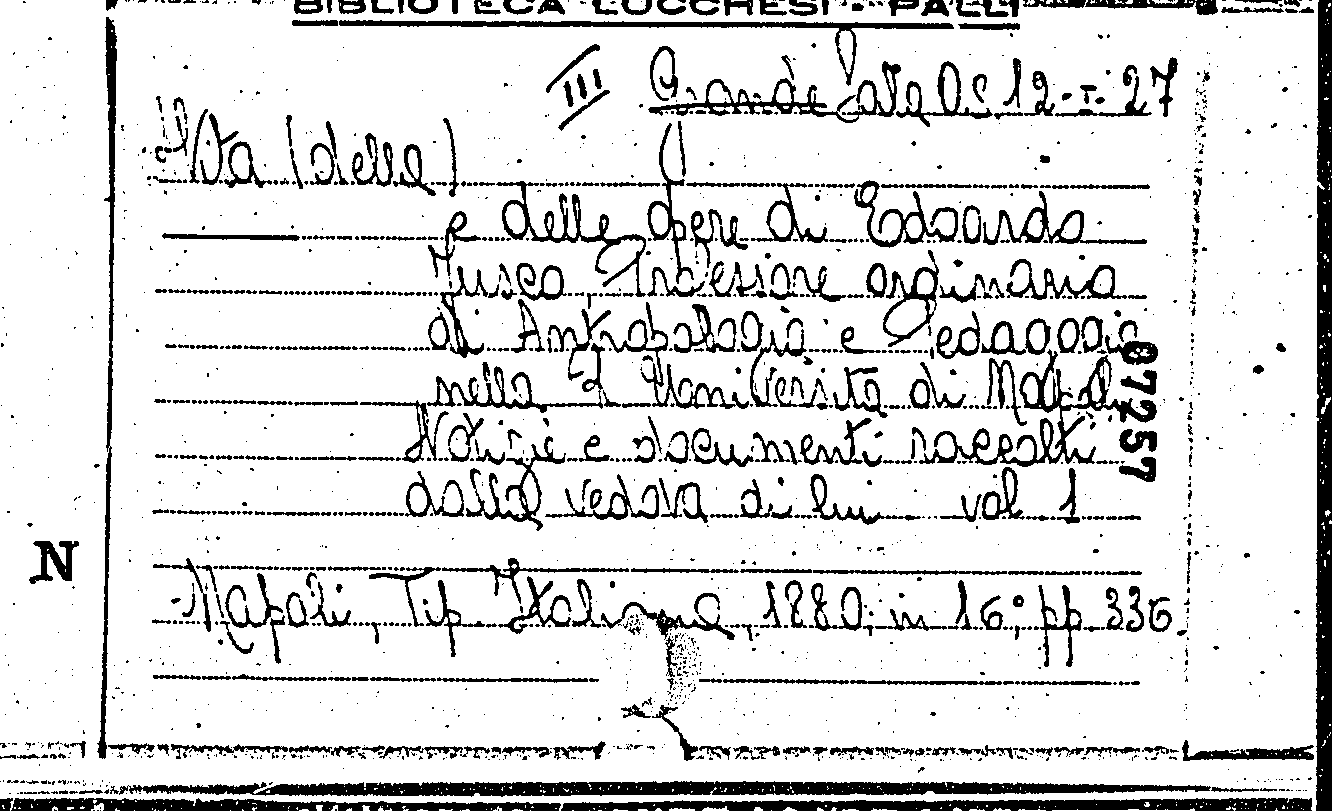 BIBLIOTECA LUCCHESI - PALLI
III Grande Sala Q. 12-I-27
Vita (della)
e delle opere di Edoardo
Fusco Professore ordinario
di Antropologia e Pedagogia
nella R. Università di Napoli
Notizie e documenti raccolti
dalla vedova di lui vol 1
Napoli, Tip. Italiana, 1880, in 16°, pp. 336
67257
N